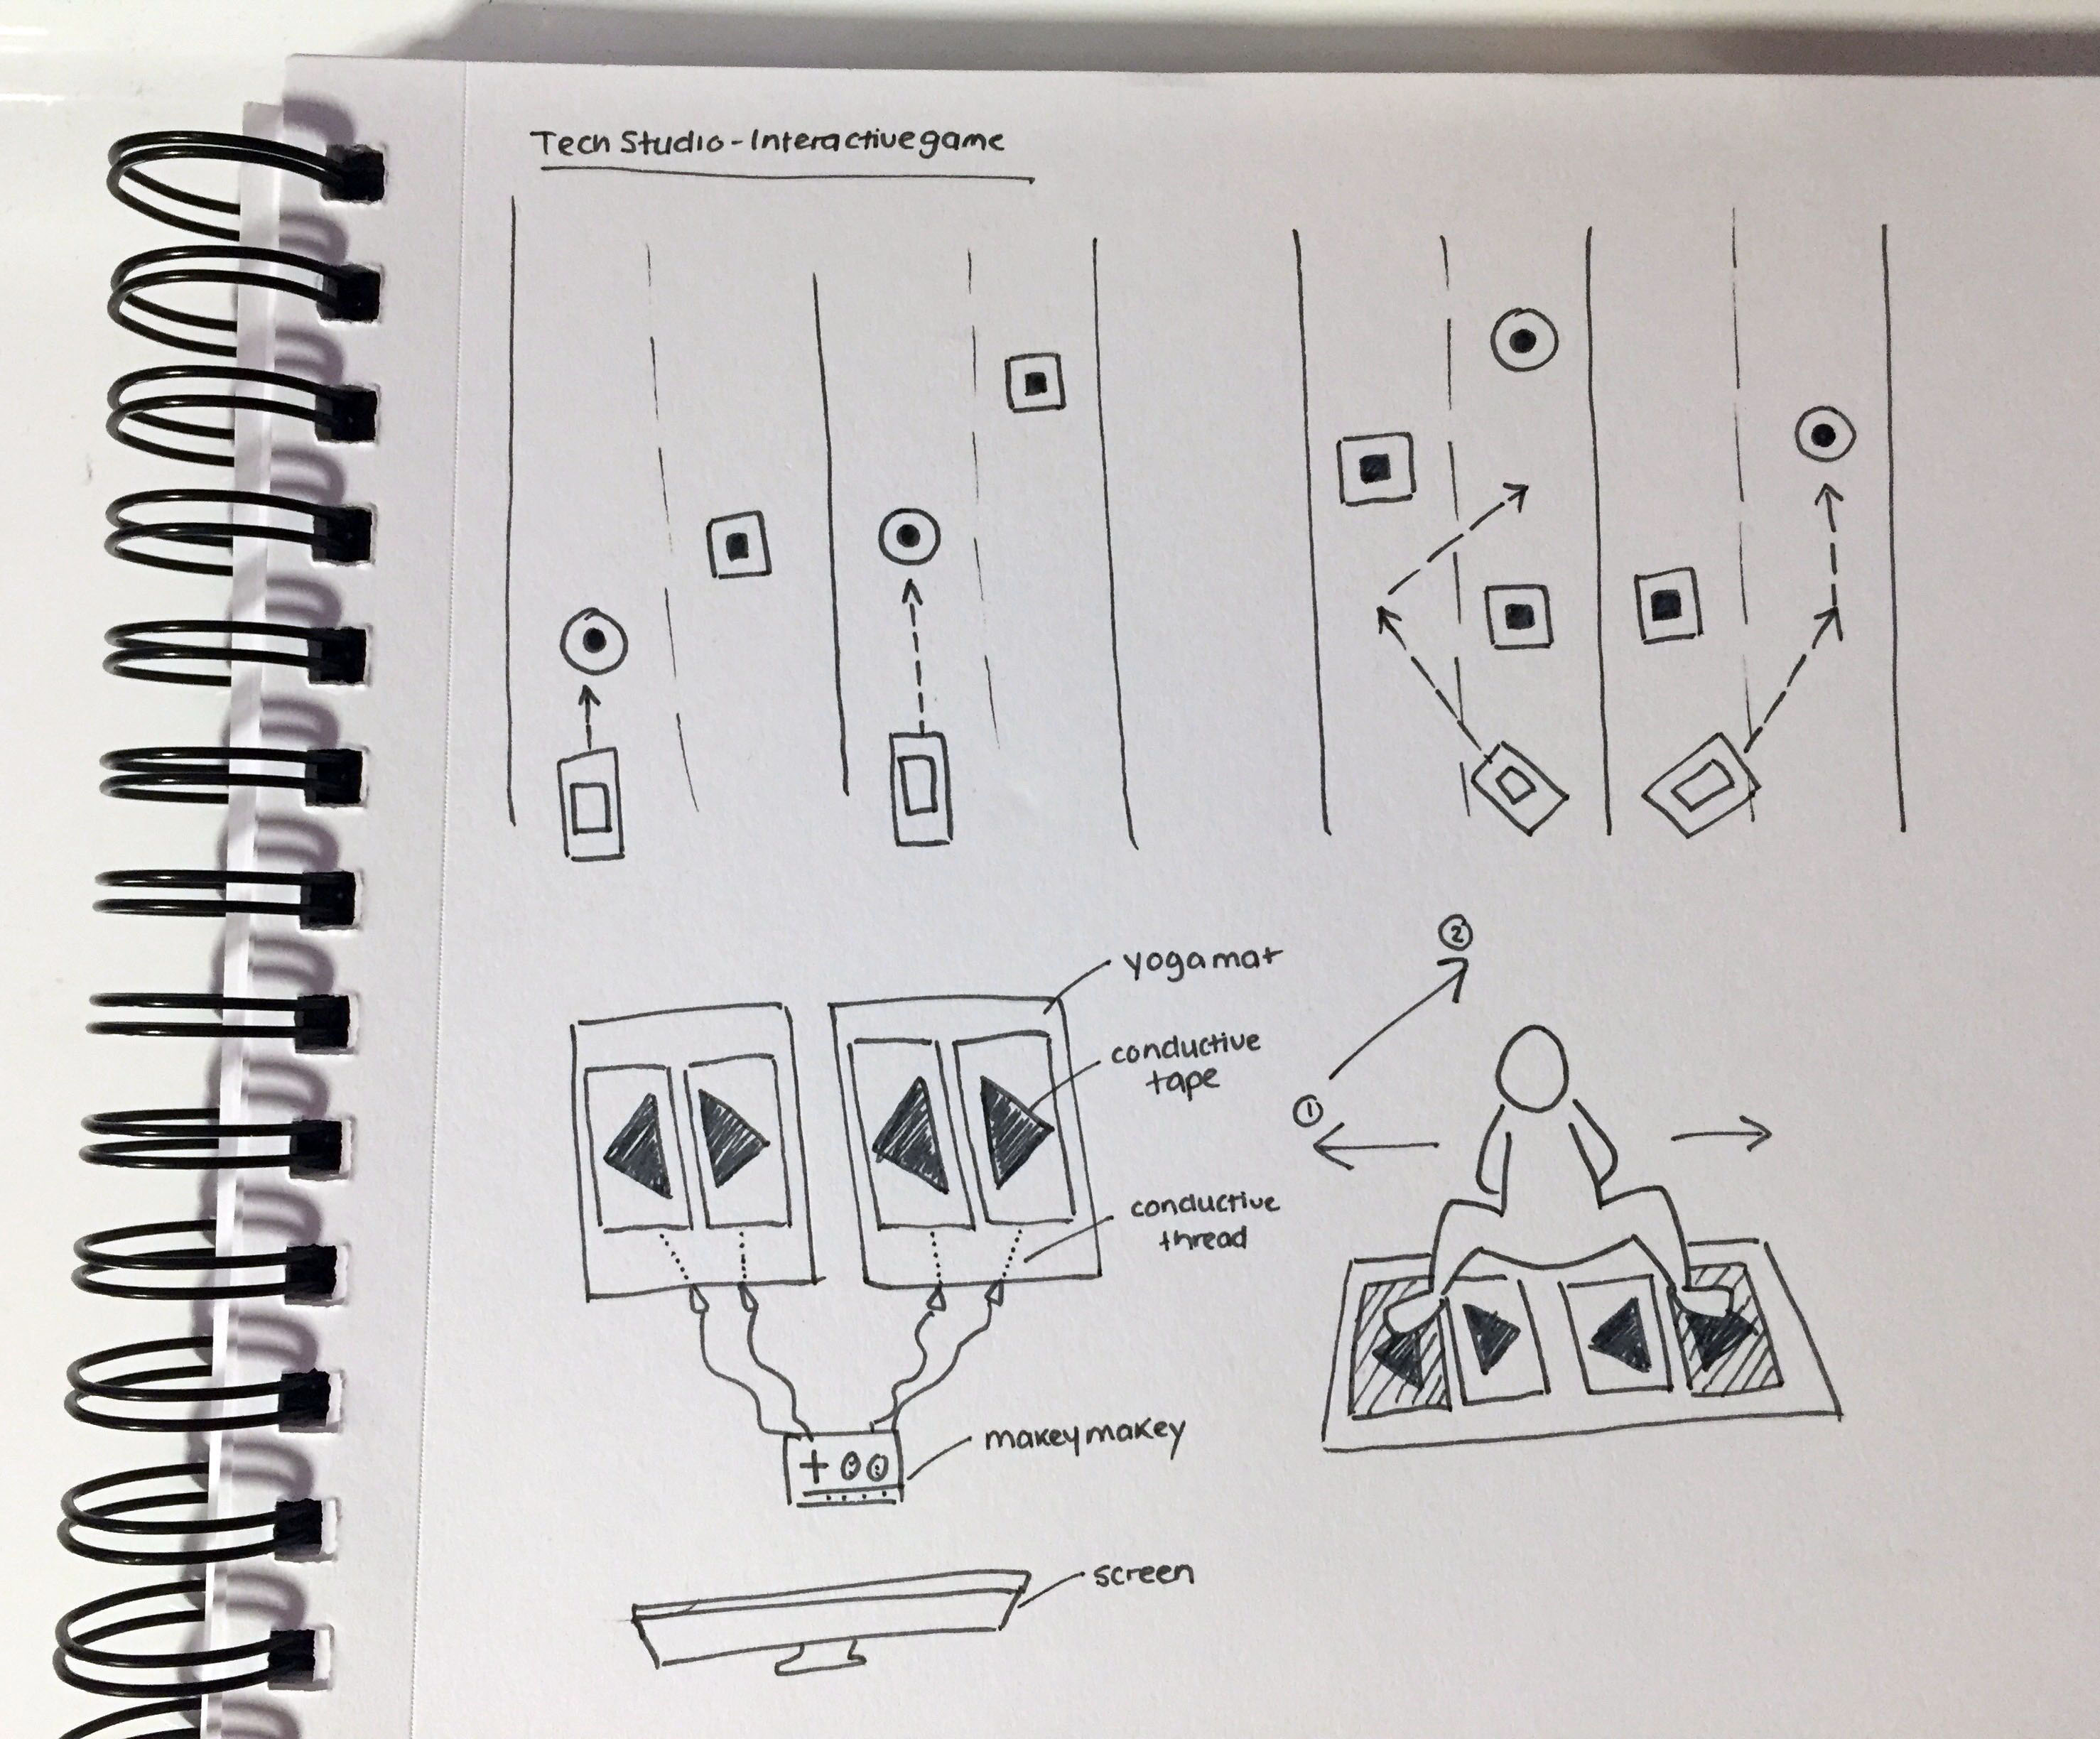 Tech Studio - Interactive game
②
yoga mat
conductive
tape
①
conductive
thread
makey makey
screen